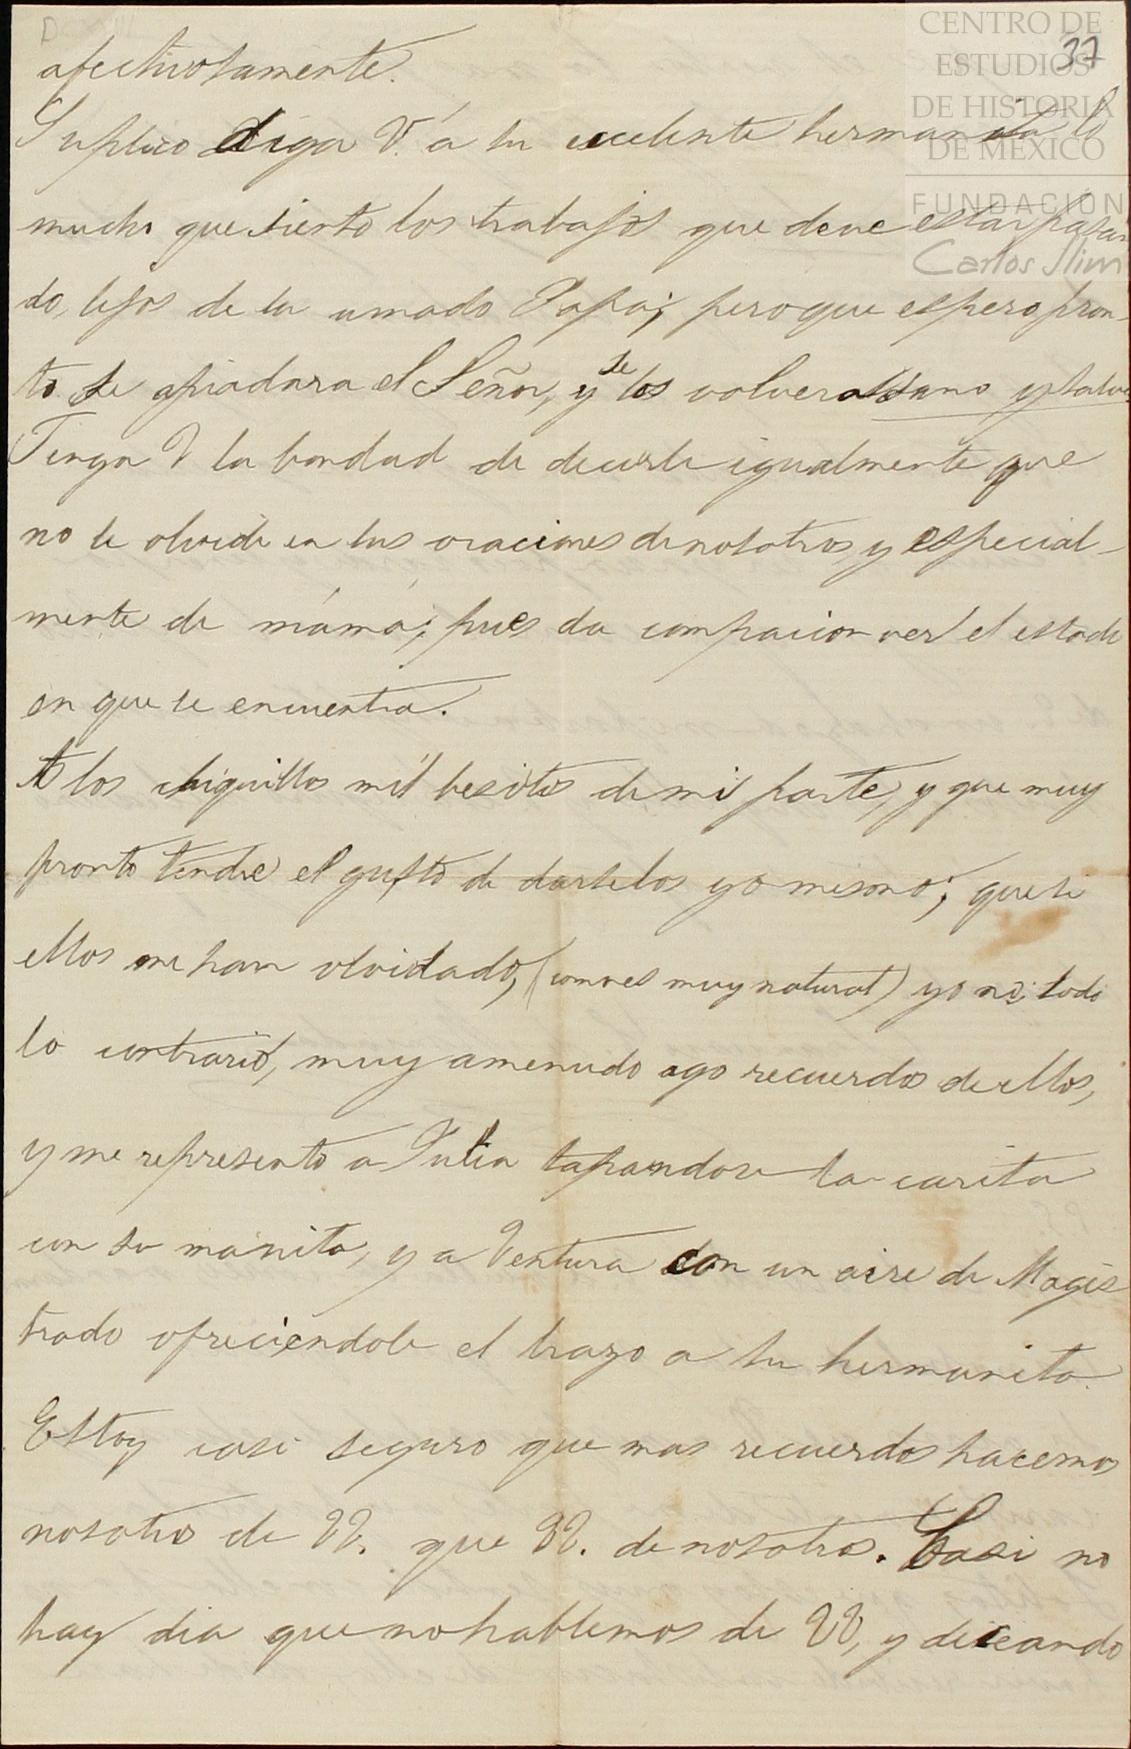 CENTRO DE
ESTUDIOS
DE HISTORIA
DE MÉXICO
FUNDACIÓN
Carlos Slim
37
afectuosamente.
Suplico diga V. á su exelente hermanita lo
mucho que siento los trabajos que deve estar pasan
do, lejos de su amado Papá; pero que espero pron-
to se apiadara el Señor, y se los volvera sano y salvo
Tenga V la bondad de decirle igualmente que
no se olvide en sus oraciones de nosotros, y especial-
mente de mámá; pues da compacion ver el estado
en que se encuentra.
A los chiquillos mil besitos de mi parte, y que muy
pronto tendre el gusto de darselos yo mismo; que si
ellos me han olvidado, (como es muy natural) yo no; todo
lo contrario, muy amenudo ago recuerdos de ellos,
y me represento a Julia tapandose la carita
con su manita, y a Ventura con un aire de Magis
trado ofreciendole el brazo a su hermanita.
Estoy casi seguro que mas recuerdos hacemos
nosotros de VV. que VV. de nosotros. Casi no
hay dia que no hablemos de VV, y diceando